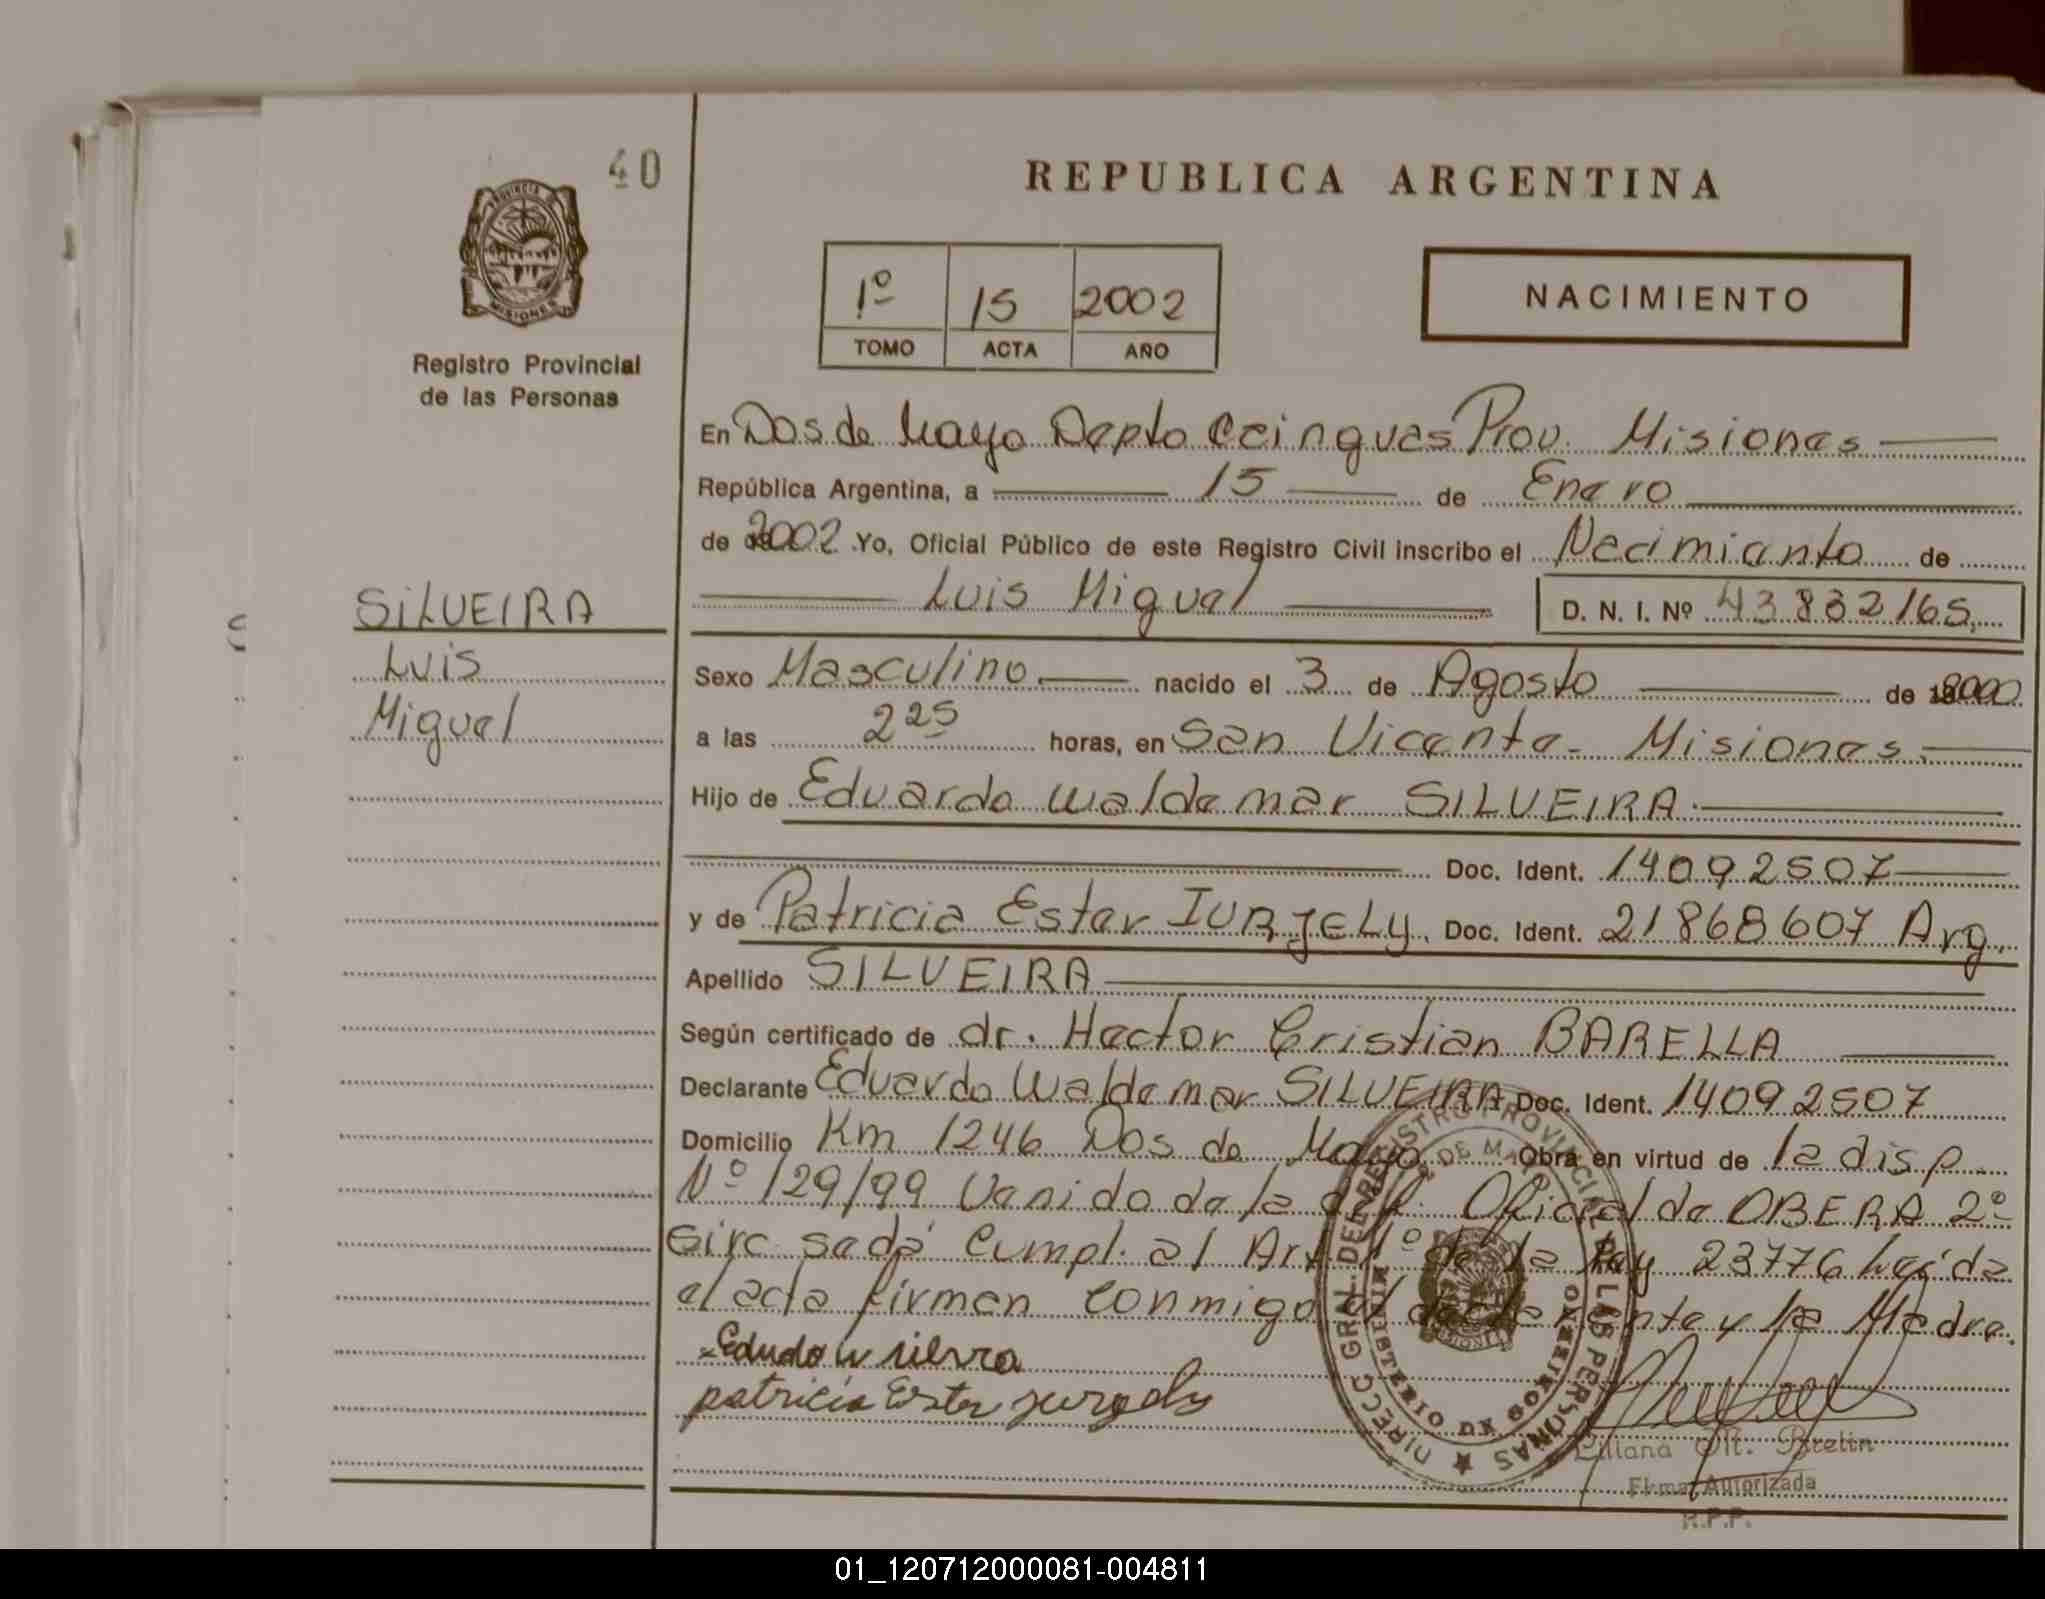 40
REPUBLICA ARGENTINA
PROVINCIA
MISIONES
Registro Provincial
de las Personas
1º 15 2002
TOMO ACTA AÑO
NACIMIENTO
En Dos de Mayo Depto Ceinguas Prov. Misiones
República Argentina, a 15 de Enero
de 2002 Yo, Oficial Público de este Registro Civil inscribo el Nacimiento de
Luis Miguel D. N. I. Nº 43832165
SILVEIRA
Luis
Miguel
Sexo Masculino nacido el 3 de Agosto de 2000
a las 2 25 horas, en San Vicente - Misiones
Hijo de Eduardo Waldemar SILVEIRA
Doc. Ident. 14092507
y de Patricia Ester IURJELY. Doc. Ident. 21868607 Arg.
Apellido SILVEIRA
Según certificado de dr. Hector Cristian BARELLA
Declarante Eduardo Waldemar SILVEIRA Doc. Ident. 14092507
Domicilio Km 1246 Dos de Mayo Obra en virtud de la disp.
Nº 129/99 Venido de la Oficial de OBERA 2º
Circ sede Cumpl. al Art 1º de la Ley 23776 Leida
el acta firman conmigo el declarante y la Madre.
patricia Ester
DIRECC GRAL. DEL REGISTRO PROVINCIAL DE LAS PERSONAS
MINISTERIO DE GOBIERNO
DOS DE MAYO
Liliana M.
Firma Autorizada
R.P.P.
01_120712000081-004811